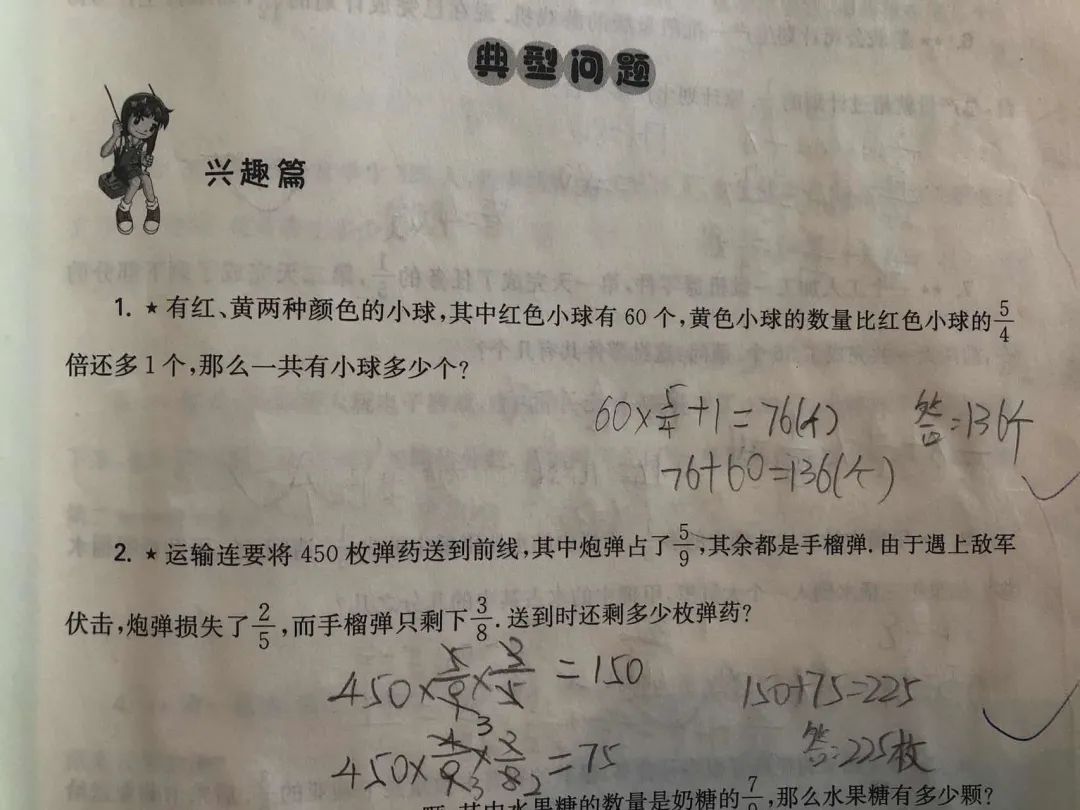 典型问题
兴趣篇
1. ★ 有红、黄两种颜色的小球,其中红色小球有 60 个,黄色小球的数量比红色小球的5/4
倍还多 1 个,那么一共有小球多少个?
60×5/4+1=76(个)
答:136个
76+60=136(个)
2. ★ 运输连要将 450 枚弹药送到前线,其中炮弹占了5/9,其余都是手榴弹.由于遇上敌军
伏击,炮弹损失了2/5,而手榴弹只剩下3/8.送到时还剩多少枚弹药?
450×5/9×3/5=150
150+75=225
450×4/9×3/8=75
答:225枚
其中水果糖的数量是奶糖的7/9,那么水果糖有多少颗?